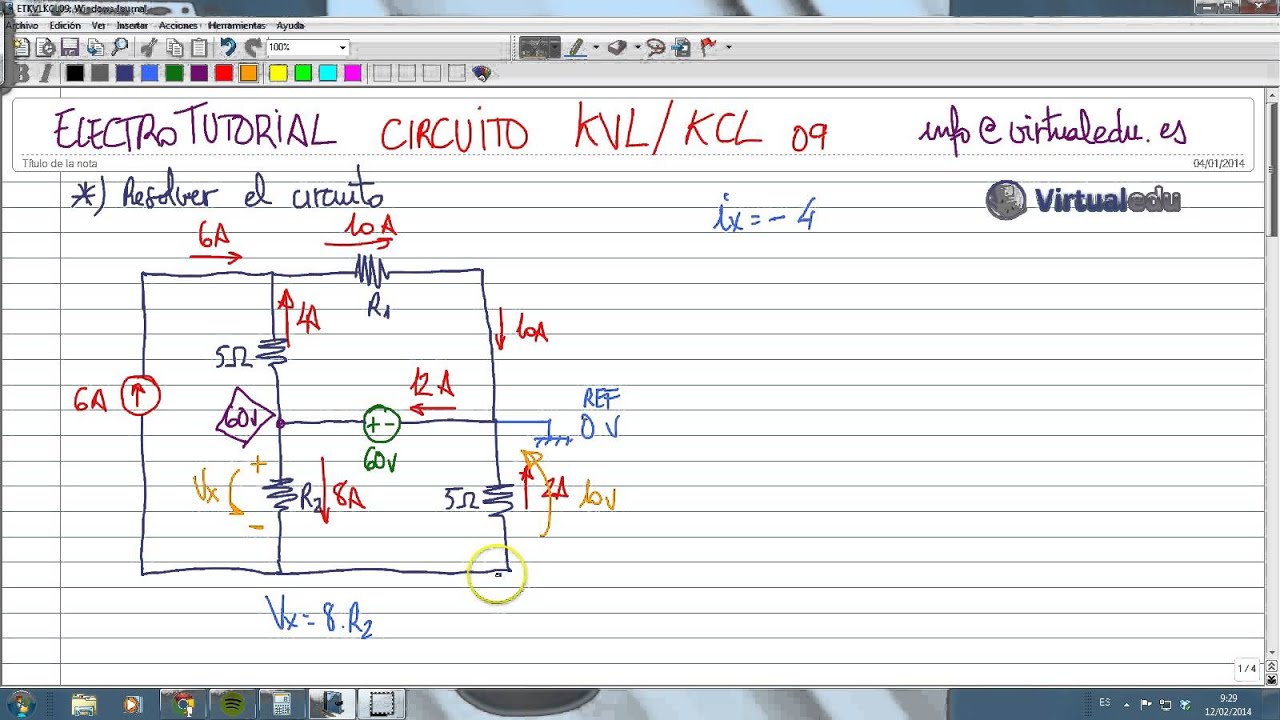 ETKVLKCL09: Windows Journal
Archivo Edición Ver Insertar Acciones Herramientas Ayuda
100%
ELECTROTUTORIAL CIRCUITO KVL/KCL 09 info@virtualedu.es
Título de la nota
04/01/2014
*) Resolver el circuito
Virtualedu
ix = - 4
6A
10A
R1
4A
10A
5Ω
12A
6A
60V
REF
0V
+ -
60V
+
Vx
R2
8A
5Ω
2A
10V
-
Vx = 8.R2
1 / 4
ES
9:29
12/02/2014